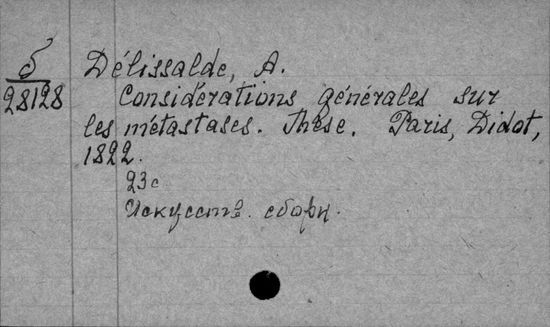 б
28128
Délissalde, A.
Considérations générales sur
les métastases. Thèse. Paris, Didot,
1822.
23 с
Искусств. сборн.